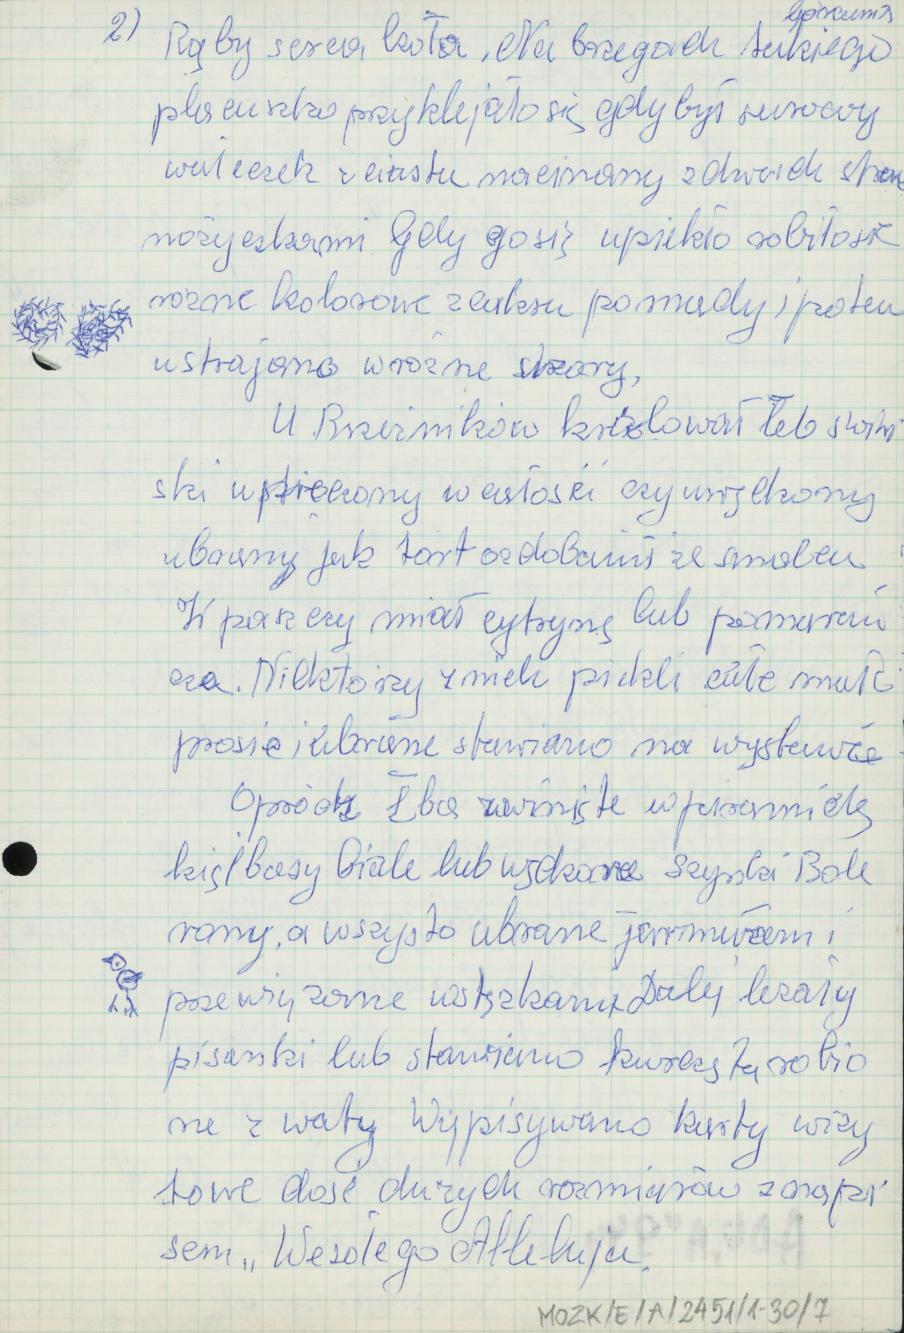 2)
Rąby serca koła. Na brzegach takiego
placuszka przyklejało się gdy był surowy
wałeczek z ciasta nacinany z dwóch stron
nożyczkami Gdy go się upiekło robiło sie
rożne kolorowe z cukru pomady i potem
ustrajano w różne wzory,
U Rzeźników królował łeb świń
ski upieczony w całości czy uwędzony
ubrany jak tort ozdobami ze smalcu
W paszczy miał cytrynę lub pomarań
cza. Niektórzy z nich piekli całe małe
prosie i ubrane stawiano na wystawie
Oprócz łba zwinięte w piramidę
kiełbasy białe lub wędzone szynki Bole
rony, a wszysto ubrane jarmużem i
przewiązane wstążkami. Dalej leżały
pisanki lub stawiano kurczęta robio
ne z waty Wypisywano karty wizy
towe dość dużych rozmiarów z napi
sem „Wesołego Alleluja.
MOZK/E/A/2451/1-30/7